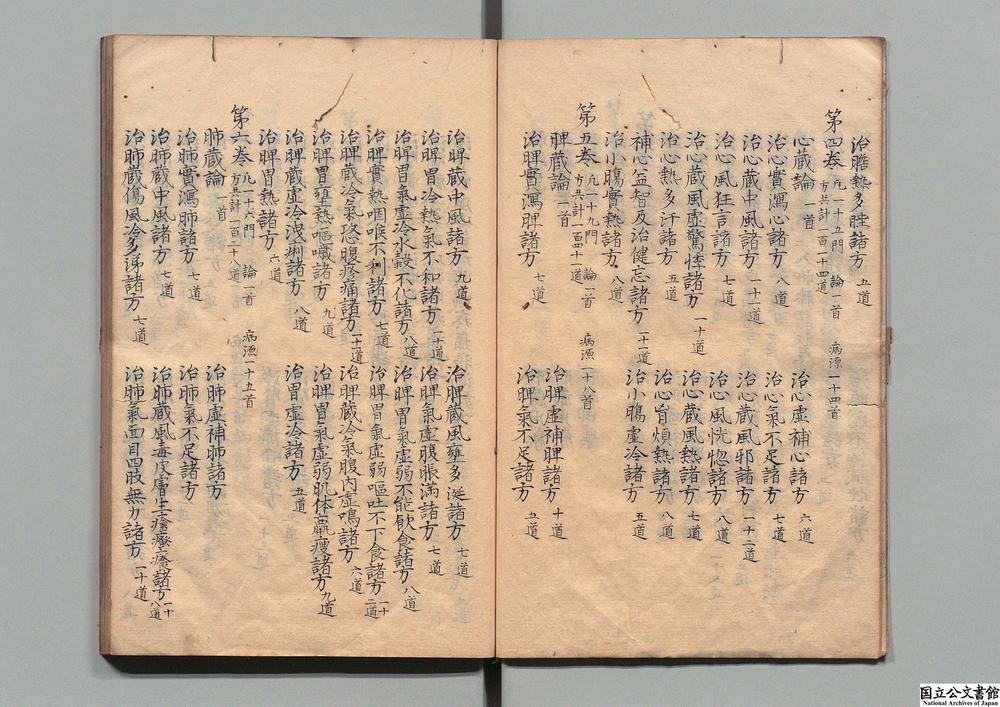 治膽熱多睡諸方 五道
第四卷 凡一十五門 論一首 病源一十四首
方共計一百二十四道
心藏論 一首 治心虛補心諸方 六道
治心實瀉心諸方 八道 治心氣不足諸方 七道
治心藏中風諸方 一十一道 治心藏風邪諸方 一十二道
治心風狂言諸方 七道 治心風恍惚諸方 八道
治心藏風虛驚悸諸方 一十道 治心藏風熱諸方 七道
治心熱多汗諸方 五道 治心胷煩熱諸方 八道
補心益智及治健忘諸方 一十一道 治小腸虛冷諸方 五道
治小腸實熱諸方 八道
第五卷 凡一十九門 論一首 病源一十八首
方共計一百四十一道
脾藏論 一首 治脾虛補脾諸方 十道
治脾實瀉脾諸方 七道 治脾氣不足諸方 五道
治脾藏中風諸方 九道 治脾藏風壅多涎諸方 七道
治脾胃冷熱氣不和諸方 一十道 治脾氣虛腹脹滿諸方 七道
治脾胃氣虛冷水穀不化諸方 八道 治脾胃氣虛弱不能飲食諸方 八道
治脾實熱咽喉不利諸方 七道 治脾胃氣虛弱嘔吐不下食諸方 一十二道
治脾藏冷氣攻心腹疼痛諸方 一十道 治脾藏冷氣腹內虛鳴諸方 六道
治脾胃壅熱嘔噦諸方 九道 治脾胃氣虛弱肌体羸瘦諸方 九道
治脾藏虛冷洩痢諸方 八道 治胃虛冷諸方 五道
治脾胃熱諸方 六道
第六卷 凡一十六門 論一首 病源一十五首
方共計一百二十八道
肺藏論 一首 治肺虛補肺諸方
治肺實瀉肺諸方 七道 治肺氣不足諸方
治肺藏中風諸方 七道 治肺藏風毒皮膚生瘡癢諸方 一十八道
治肺藏傷風冷多涕諸方 七道 治肺氣面目四肢無力諸方 一十道
国立公文書館
National Archives of Japan